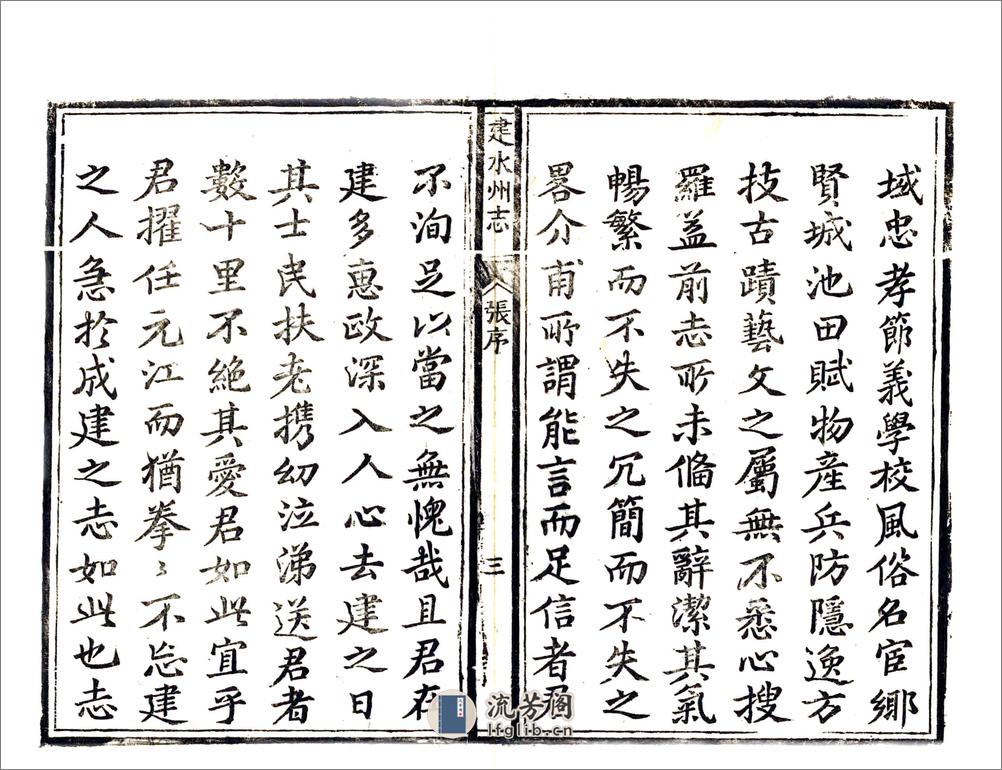 域忠孝節義學校風俗名宦鄉
賢城池田賦物產兵防隱逸方
技古蹟藝文之屬無不悉心搜
羅蓋前志所未偹其辭潔其氣
暢繁而不失之冗簡而不失之
畧介甫所謂能言而足信者君
建水州志
張序
三
不洵足以當之無愧哉且君在
建多惠政深入人心去建之日
其士民扶老携幼泣涕送君者
數十里不絕其愛君如此宜乎
君擢任元江而猶拳〻不忘建
之人急於成建之志如此也志
流芳閣
lfglib.cn